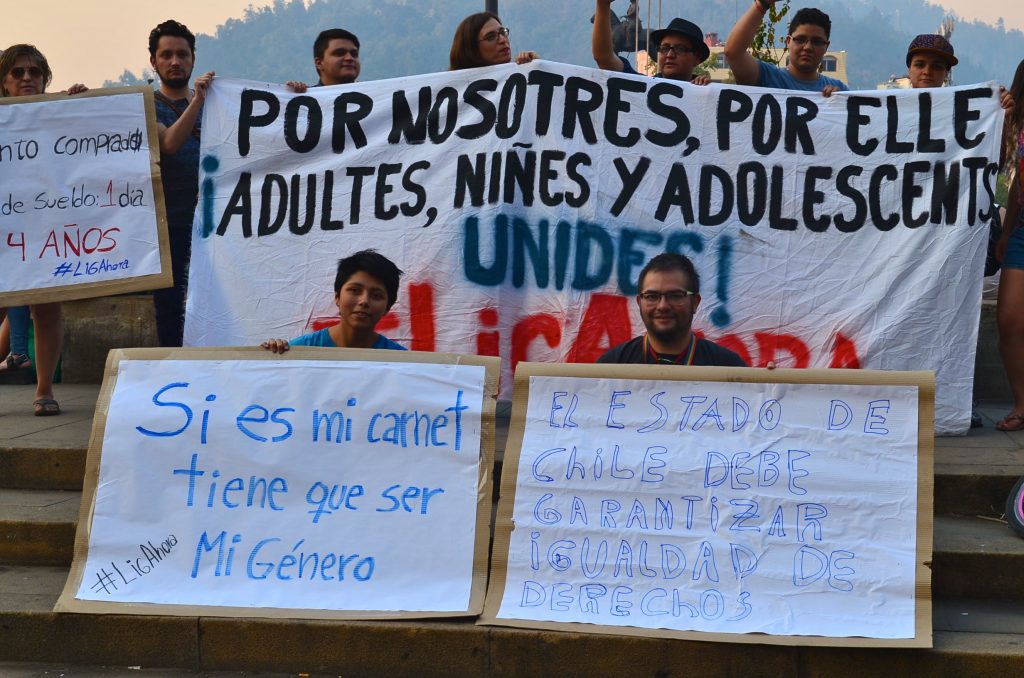 POR NOSOTRES, POR ELLE
¡ADULTES, NIÑES Y ADOLESCENTS
UNIDES!
#LIGAHORA
nto comprado
de sueldo: 1 día
4 AÑOS
#LIGAhora
Si es mi carnet
tiene que ser
Mi Género
#LIGAhora
EL ESTADO DE
CHILE DEBE
GARANTIZAR
IGUALDAD DE
DERECHOS